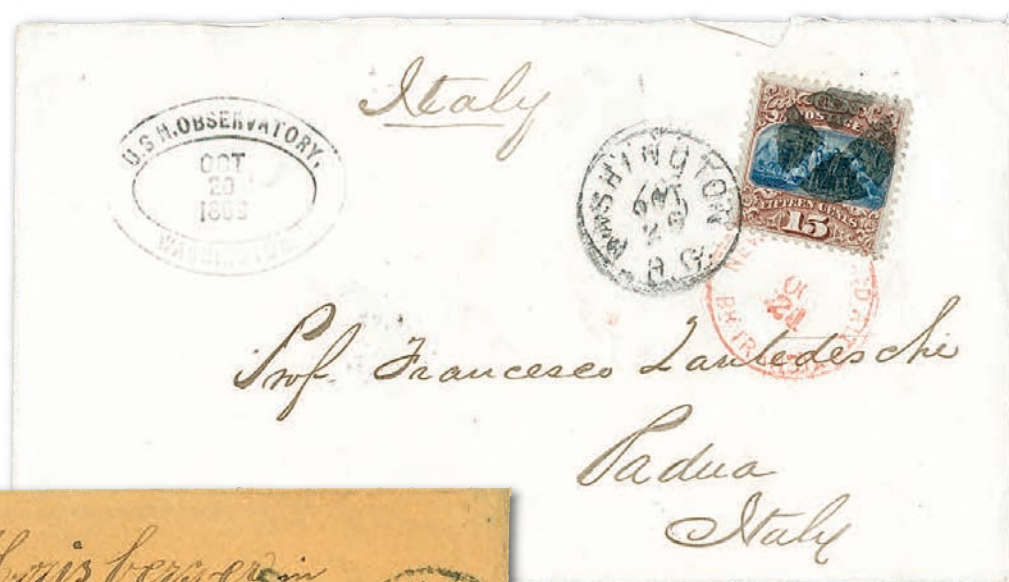 U.S N. OBSERVATORY.
OCT
20
1869
WASHINGTON
Italy
WASHINGTON
OCT
20
D.C.
U.S. POSTAGE
FIFTEEN CENTS
15
NEW PAID ALL
21
BR. TRANSIT
Prof Francesco Zantedeschi
Padua
Italy
in